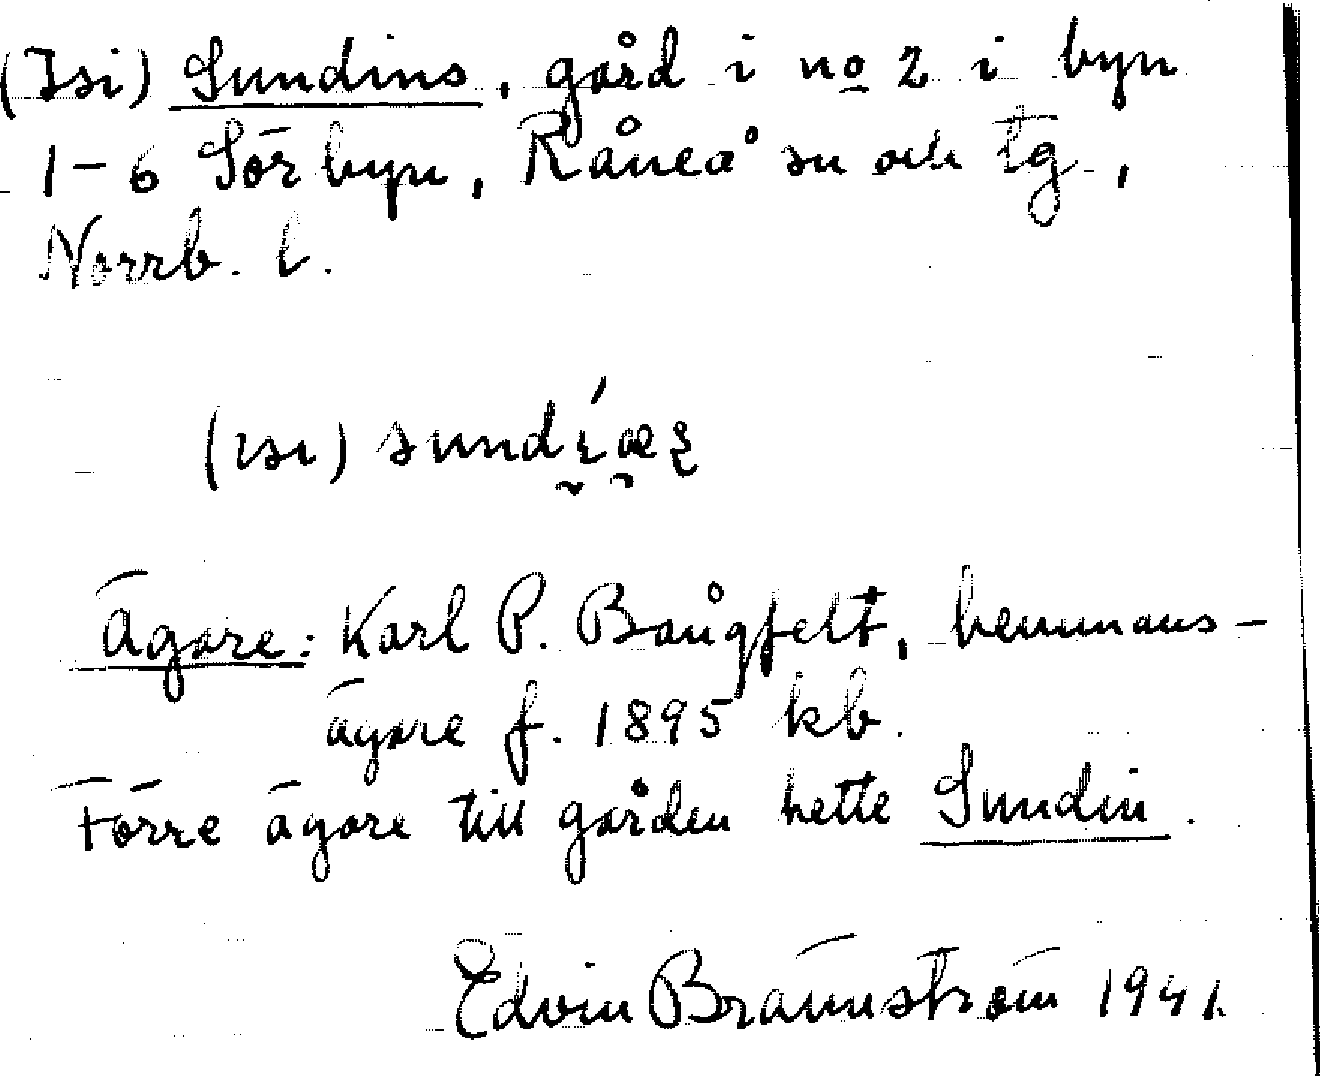 (Isi) Sundins, gård i no 2 i byn
1-6 Sörbyn, Råneå sn och tg,
Norrb. l.
(ısı)
Ägare: Karl P. Bångfelt, hemmans-
ägare f. 1895 kb.
Förre ägare till gården hette Sundin.
Edvin Brännström 1941.